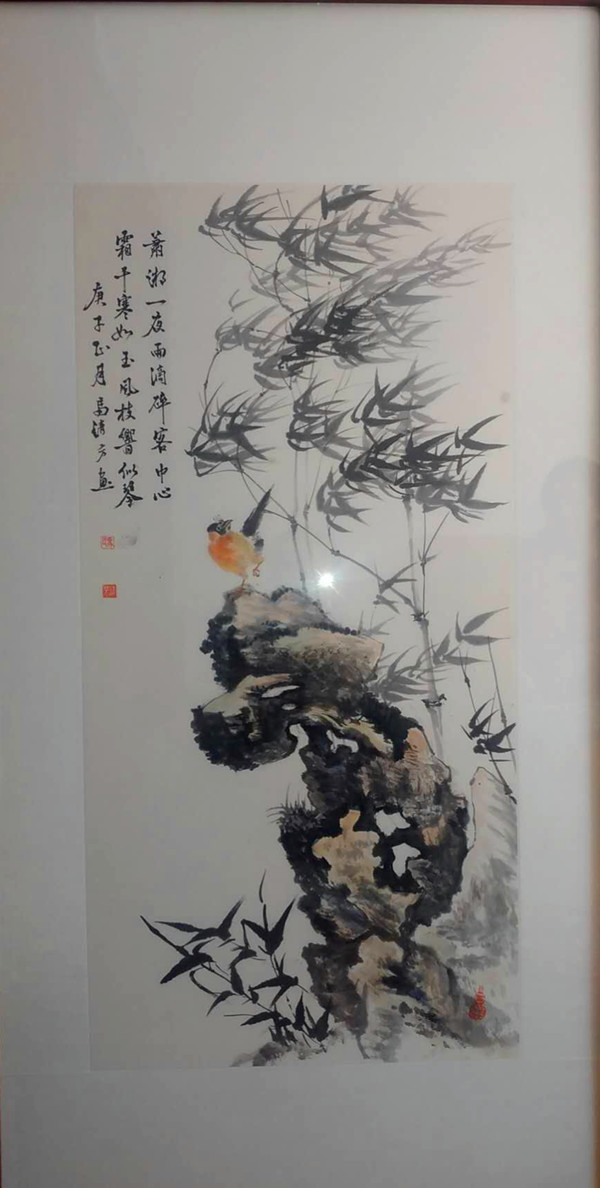 蕭湘一夜雨滴碎客中心
霜干寒如玉風枝響似琴
庚子正月高